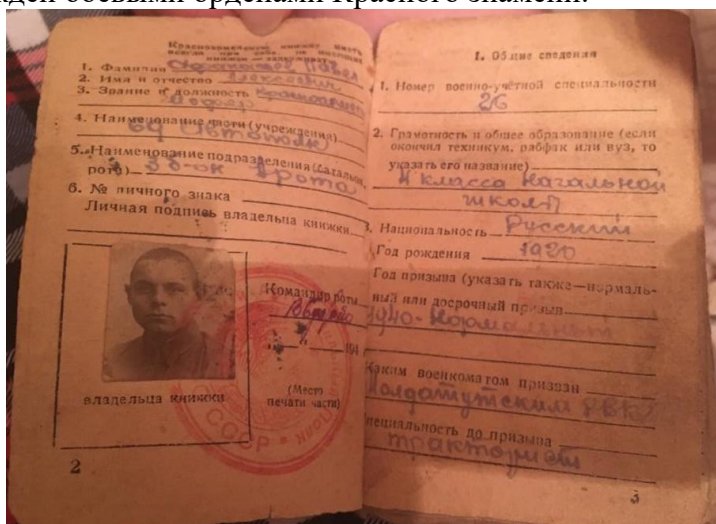 боевыми орденами Красного знамени.
Красноармейскую книжку иметь
всегда при себе. Не имеющих
книжки — задерживать.
1. Фамилия Павел
2. Имя и отчество Алексеевич
3. Звание и должность
Шофер
4. Наименование части (учреждения)
69 Автополк
5. Наименование подразделения (батальон,
рота) рота
6. № личного знака
Личная подпись владельца книжки
Командир роты
194
владельца книжки
(Место
печати части)
СССР
2
I. Общие сведения
1. Номер военно-учётной специальности
26
2. Грамотность и общее образование (если
окончил техникум, рабфак или вуз, то
указать его название)
4 класса начальной
школы
3. Национальность Русский
Год рождения 1920
Год призыва (указать также—нормаль-
ный или досрочный призыв
1940- Нормальный
Каким военкоматом призван
РВК
специальность до призыва
тракторист
3